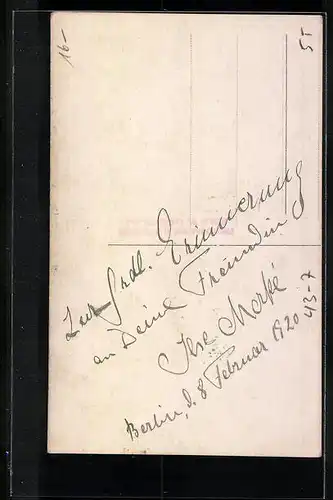 16-
5T
Zur frdl. Erinnerung
an Deine Freundin
Ilse
Berlin, d. 8 Februar 1920
43-7